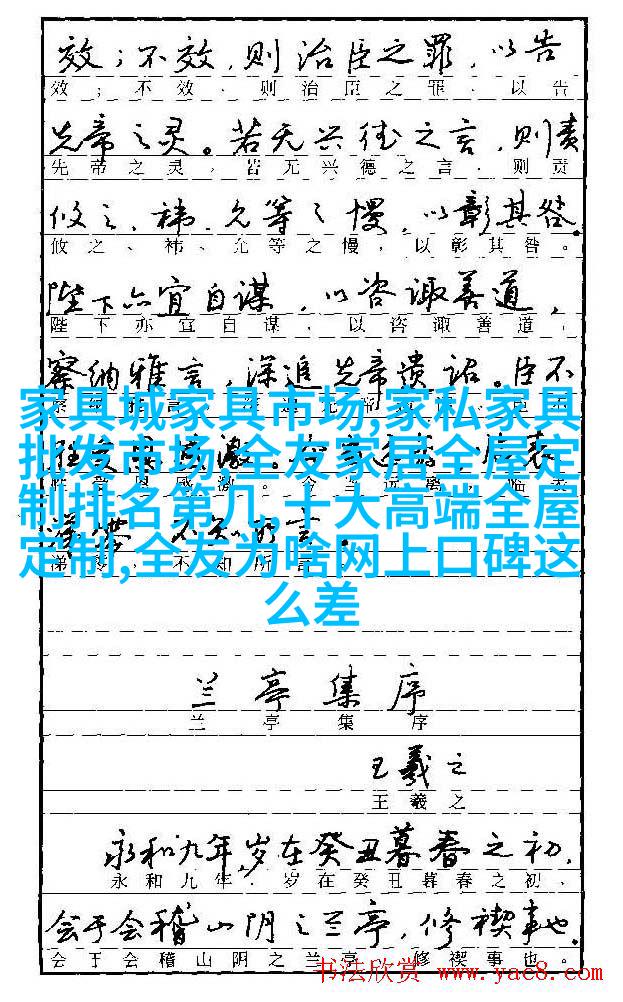 效；不效，则治臣之罪，以告
效；不效、则治臣之罪、以告
先帝之灵。若无兴德之言，则责
先帝之灵，若无兴德之言，则责
攸之、祎、允等之慢，以彰其咎。
攸之、祎、允等之慢，以彰其咎。
陛下亦宜自谋，以咨诹善道，
陛下亦宜自谋，以咨诹善道，
察纳雅言，深追先帝遗诏。臣不
家具城家具市场,家私家具
批发市场,全友家居全屋定
制排名第几,十大高端全屋
定制,全友为啥网上口碑这
么差
不知所言。
兰亭集序
兰亭集序
王羲之
王羲之
永和九年，岁在癸丑暮春之初，
永和九年，岁在癸丑暮春之初、
会于会稽山阴之兰亭，修禊事也。
会于会稽山阴之兰亭，修禊事也。
书法欣赏 www.yac8.com